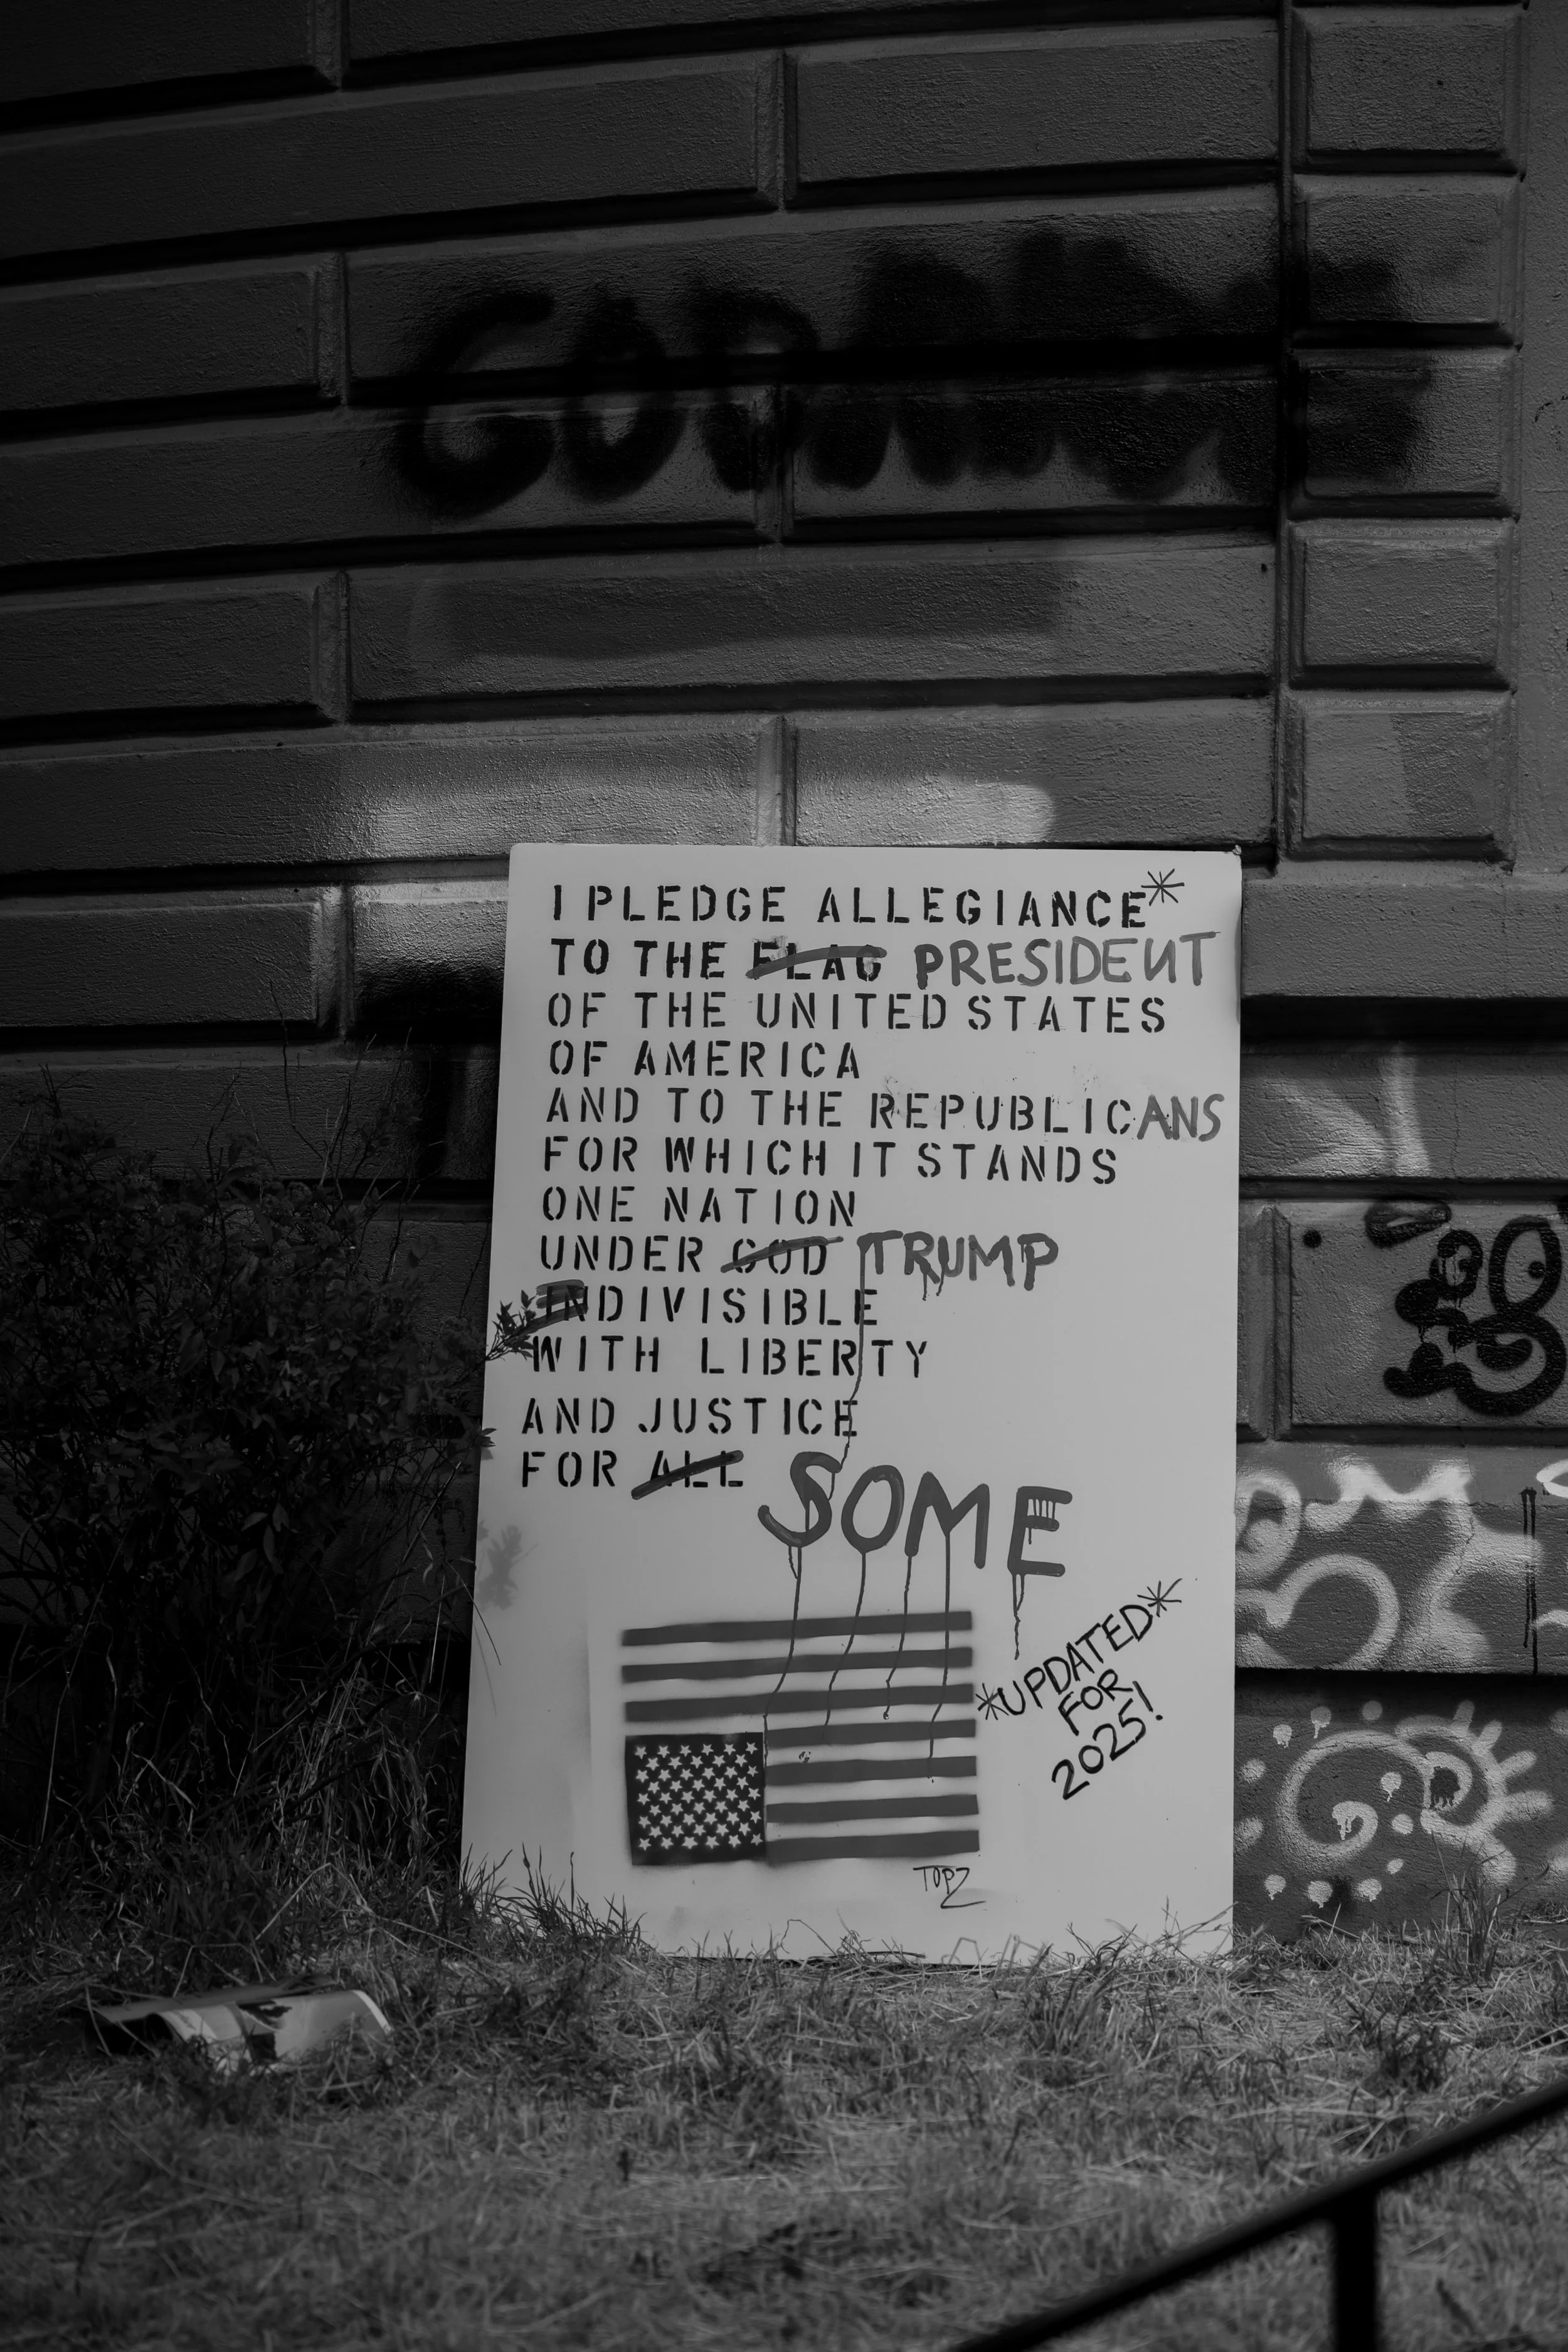 I PLEDGE ALLEGIANCE*
TO THE FLAG PRESIDENT
OF THE UNITED STATES
OF AMERICA
AND TO THE REPUBLICANS
FOR WHICH IT STANDS
ONE NATION
UNDER GOD TRUMP
INDIVISIBLE
WITH LIBERTY
AND JUSTICE
FOR ALL SOME
*UPDATED*
FOR
2025!
TOPZ